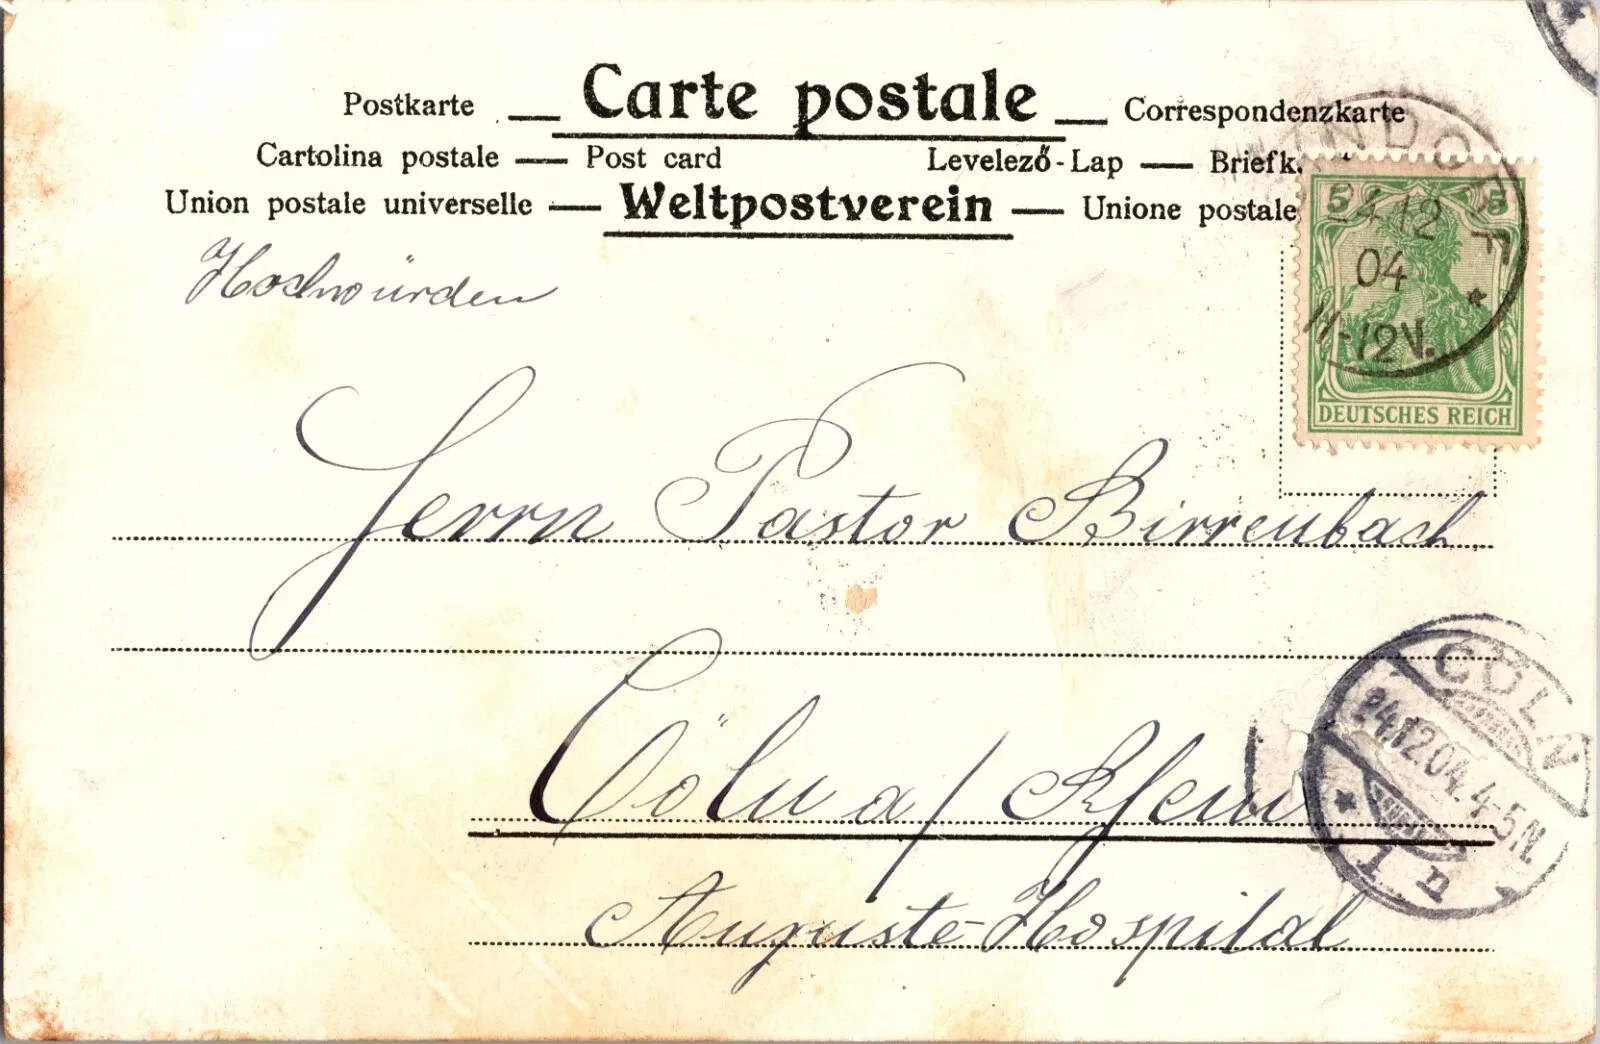 Postkarte — Carte postale — Correspondenzkarte
Cartolina postale — Post card Levelező-Lap — Briefk
Union postale universelle — Weltpostverein — Unione postale
5 5
24 12
04
11-12V.
DEUTSCHES REICH
Hochwürden
Herrn Pastor Birrenbach
Cöln a/Rhein
Auguste-Hospital
CÖLN
24.12.04. 4-5N.
* 1 n